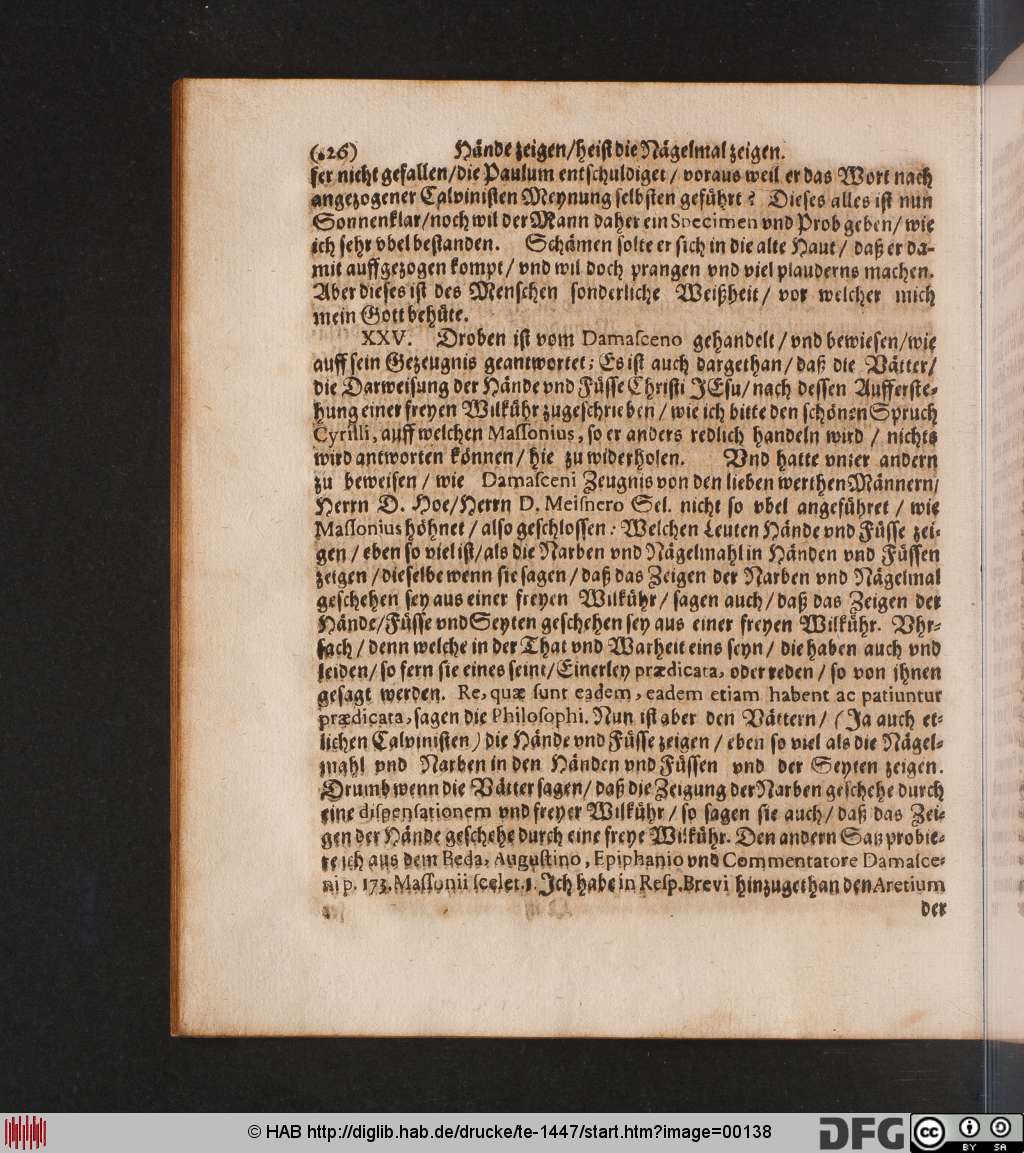 (126) Hände zeigen/heist die Nägelmal zeigen.
ser nicht gefallen/die Paulum entschuldiget / voraus weil er das Wort nach
angezogener Calvinisten Meynung selbsten geführt? Dieses alles ist nun
Sonnenklar/noch wil der Mann daher ein Specimen vnd Prob geben/ wie
ich sehr vbel bestanden. Schämen solte er sich in die alte Haut/ daß er da-
mit auffgezogen kompt/ vnd wil doch prangen vnd viel plauderns machen.
Aber dieses ist des Menschen sonderliche Weißheit/ vor welcher mich
mein Gott behüte.
XXV. Droben ist vom Damaſceno gehandelt/ vnd bewiesen/wie
auff sein Gezeugnis geantwortet; Es ist auch dargethan/ daß die Vätter/
die Darweisung der Hände vnd Füsse Christi JEsu/ nach dessen Aufferste-
hung einer freyen Wilkühr zugeschrieben/ wie ich bitte den schönen Spruch
Cyrilli, auff welchen Maſſonius, so er anders redlich handeln wird / nichts
wird antworten können/ hie zu widerholen. Vnd hatte vnter andern
zu beweisen / wie Damaſceni Zeugnis von den lieben werthen Männern/
Herrn D. Hoe/Herrn D. Meiſnero Sel. nicht so vbel angeführet / wie
Maſſonius höhnet / also geschlossen: Welchen Leuten Hände vnd Füsse zei-
gen / eben so viel ist/als die Narben vnd Nägelmahl in Händen vnd Füssen
zeigen / dieselbe wenn sie sagen / daß das Zeigen der Narben vnd Nägelmal
geschehen sey aus einer freyen Wilkühr/ sagen auch/ daß das Zeigen der
Hände/Füsse vnd Seyten geschehen sey aus einer freyen Wilkühr. Vhr-
sach/ denn welche in der That vnd Warheit eins seyn/ die haben auch vnd
leiden/ so fern sie eines seint/Einerley prædicata, oder reden/ so von ihnen
gesagt werden. Re, quæ ſunt eadem, eadem etiam habent ac patiuntur
prædicata, sagen die Philoſophi. Nun ist aber den Vättern/ (Ja auch et-
lichen Calvinisten) die Hände vnd Füsse zeigen / eben so viel als die Nägel-
mahl vnd Narben in den Händen vnd Füssen vnd der Seyten zeigen.
Drumb wenn die Vätter sagen/ daß die Zeigung der Narben geschehe durch
eine diſpenſationem vnd freyer Wilkühr/ so sagen sie auch/ daß das Zei-
gen der Hände geschehe durch eine freye Wilkühr. Den andern Satz probie-
re ich aus dem Beda, Auguſtino, Epiphanio vnd Commentatore Damaſce-
ni p. 173. Maſſonii ſcelet. 1. Ich habe in Reſp. Brevi hinzugethan den Aretium
der
© HAB http://diglib.hab.de/drucke/te-1447/start.htm?image=00138
DFG
cc BY SA